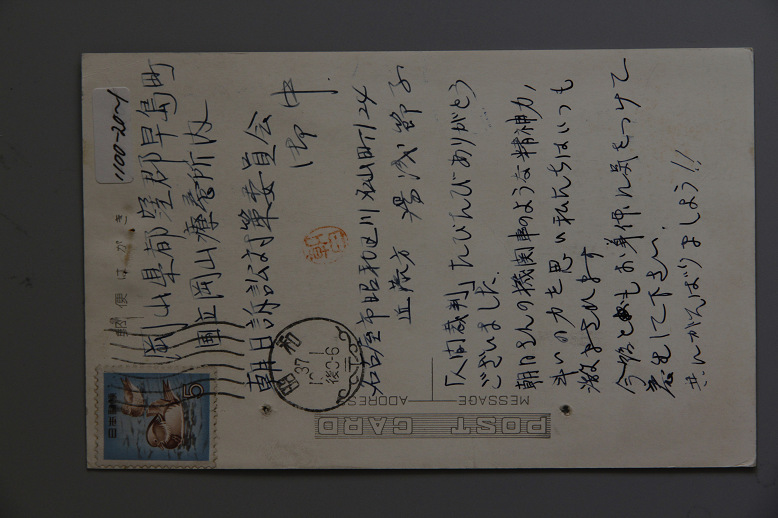 1100-20-1
郵便はがき
日本郵便
5
岡山県都窪郡早島町
国立岡山療養所内
朝日訴訟対策委員会
御中
昭和
37
後0-6
名古屋市昭和区川名山町124
近藤方 湯浅
「人間裁判」たびたびありがとう
ございました。
朝日さんの機関車のような精神力、
斗いの力を思い私たちはいつも
激まされます
今后ともお身体に気をつけて
して下さい。
さんがんばりましょう!!
POST CARD
MESSAGE
ADDRESS